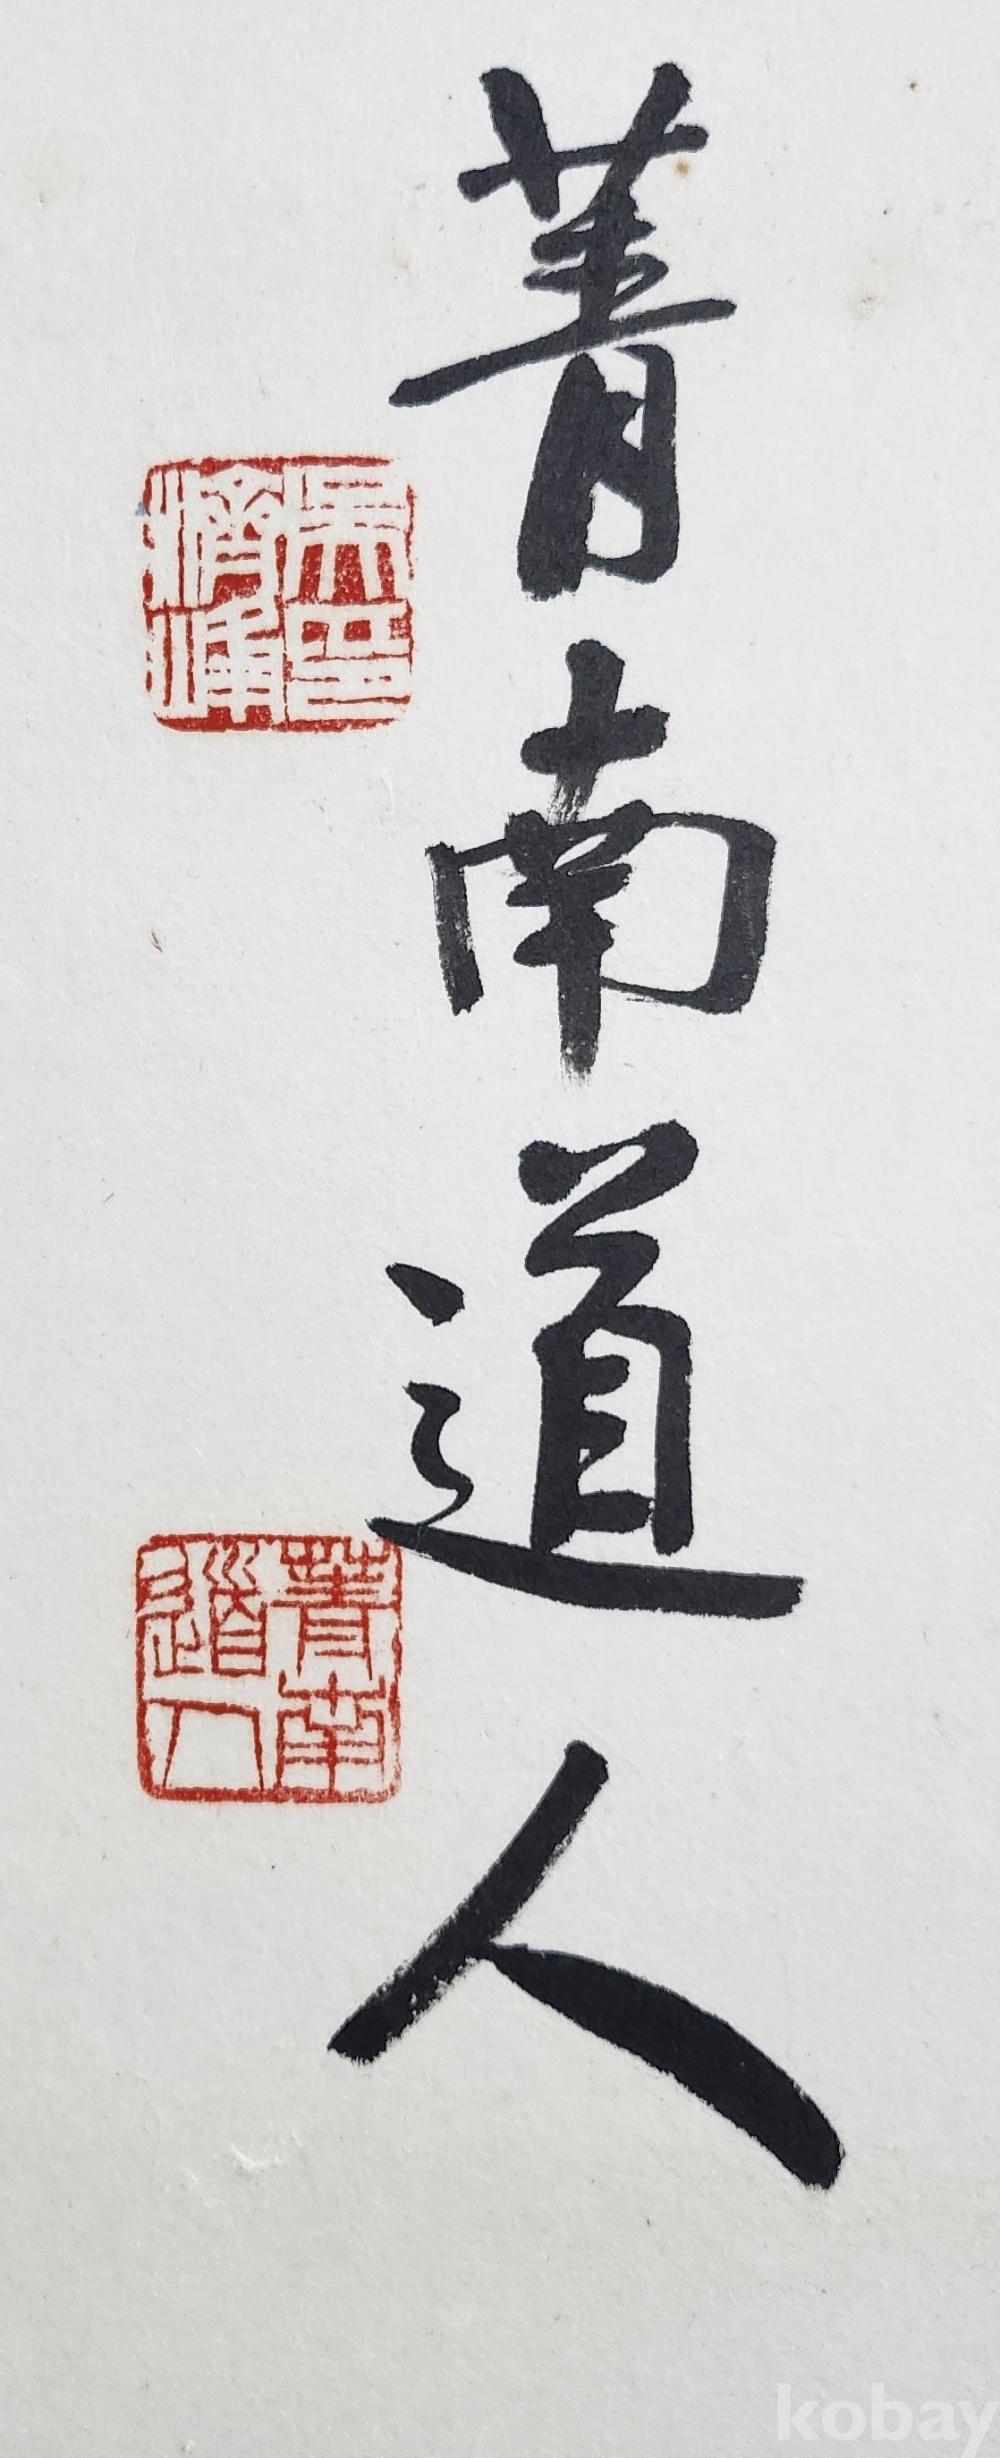 菁南道人
菁南
道人
kobay